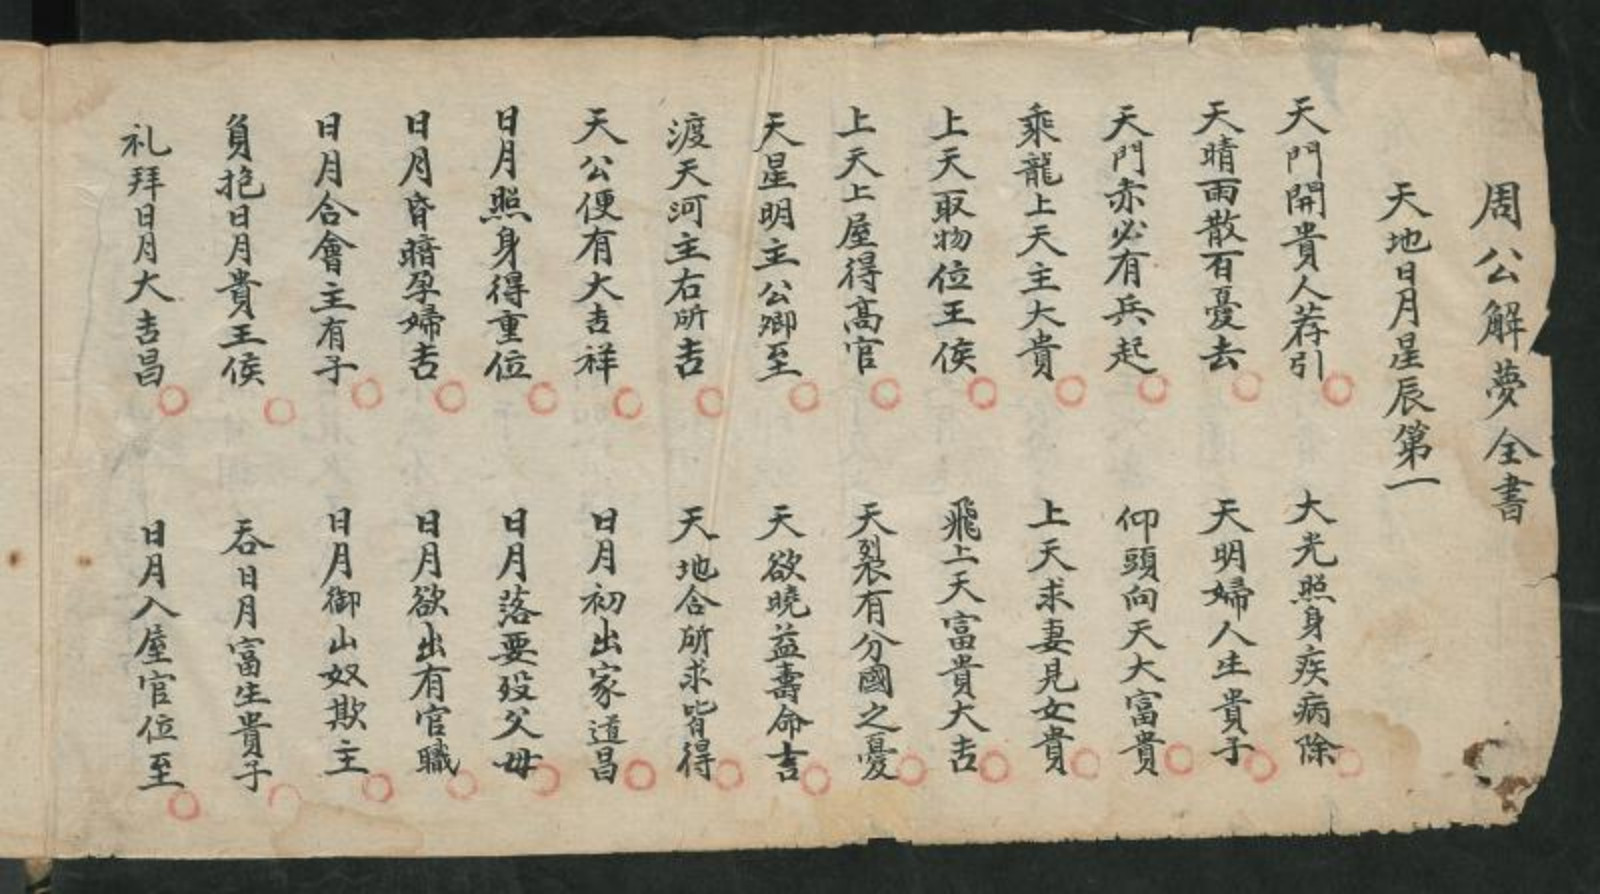 周公解夢全書
天地日月星辰第一
天門開貴人荐引 大光照身疾病除
天晴雨散百憂去 天明婦人生貴子
天門赤必有兵起 仰頭向天大富貴
乘龍上天主大貴 上天求妻見女貴
上天取物位王侯 飛上天富貴大吉
上天上屋得高官 天裂有分國之憂
天星明主公卿至 天欲曉益壽命吉
渡天河主右所吉 天地合所求皆得
天公便有大吉祥 日月初出家道昌
日月照身得重位 日月落要歿父母
日月昏暗孕婦吉 日月欲出有官職
日月合會主有子 日月御山奴欺主
負抱日月貴王侯 吞日月富生貴子
礼拜日月大吉昌 日月入屋官位至